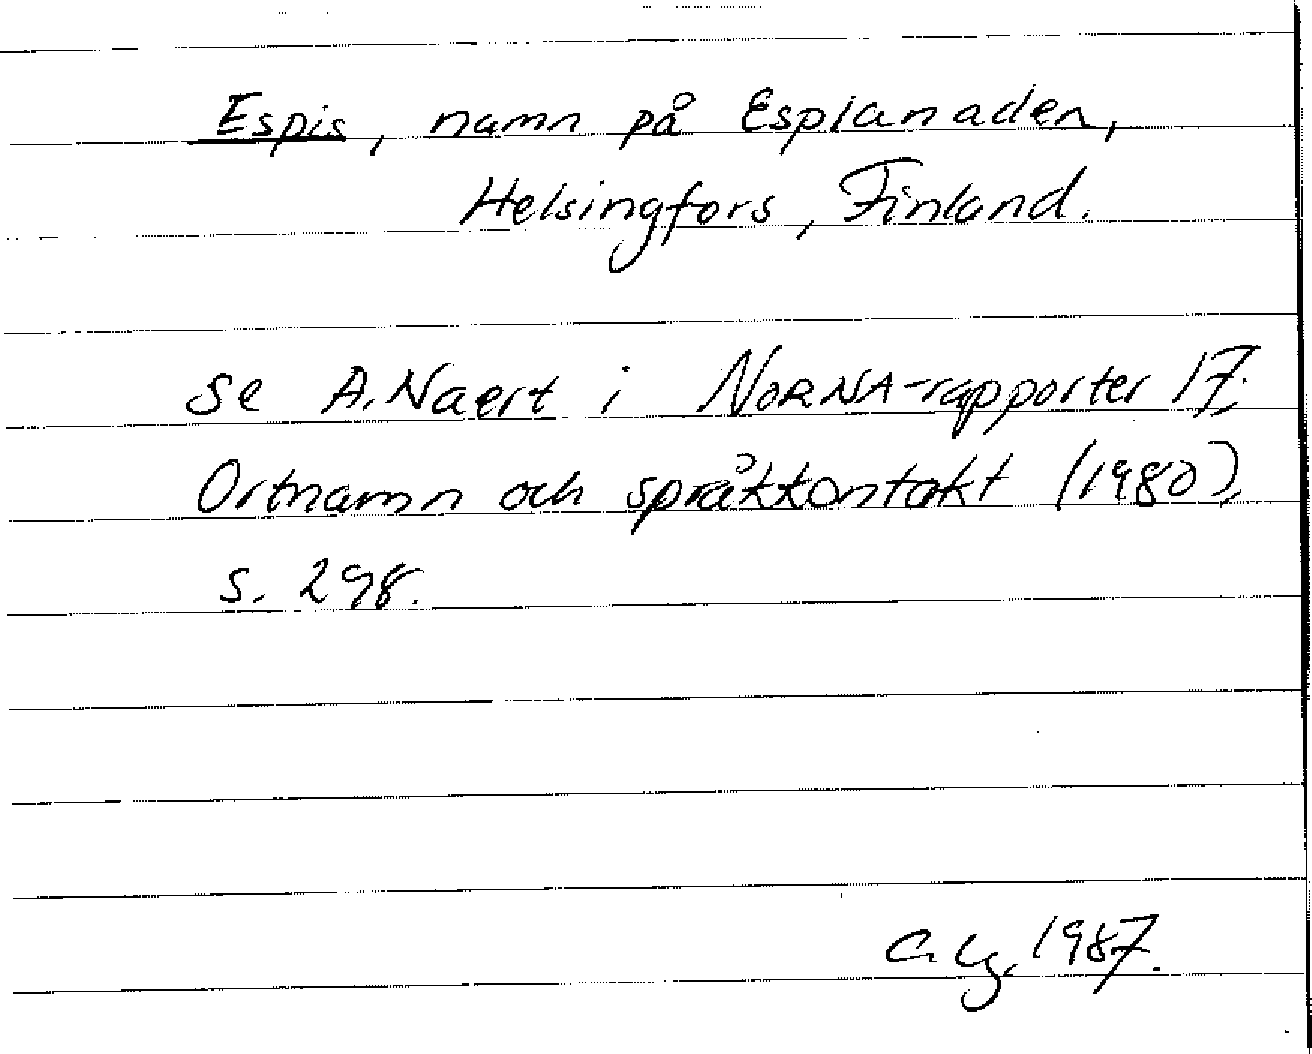 Espis, namn på Esplanaden,
Helsingfors, Finland.
se A. Naert i NORNA-rapporter 17.
Ortnamn och språkkontakt (1980),
s. 298.
1987.